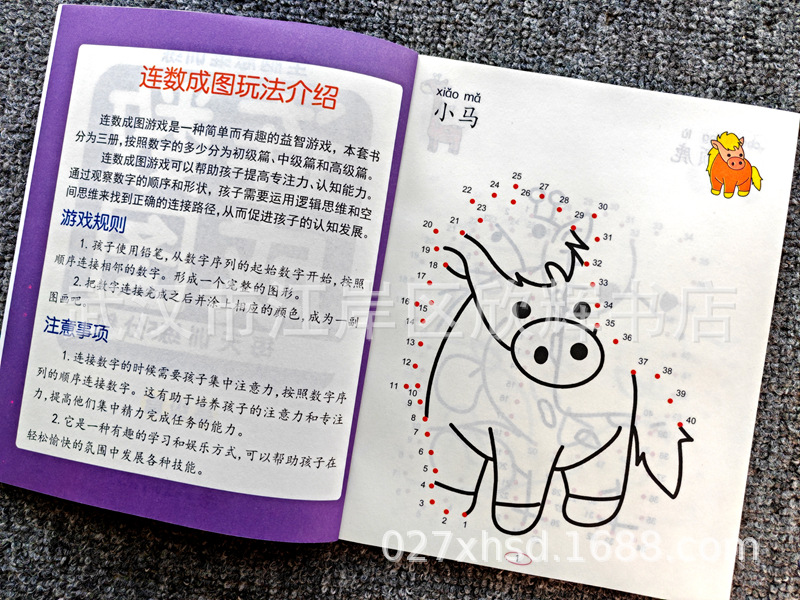 连数成图玩法介绍
连数成图游戏是一种简单而有趣的益智游戏，本套书
分为三册，按照数字的多少分为初级篇、中级篇和高级篇。
连数成图游戏可以帮助孩子提高专注力、认知能力。
通过观察数字的顺序和形状，孩子需要运用逻辑思维和空
间思维来找到正确的连接路径，从而促进孩子的认知发展。
游戏规则
1. 孩子使用铅笔，从数字序列的起始数字开始，按照
顺序连接相邻的数字。形成一个完整的图形。
2. 把数字连接完成之后并涂上相应的颜色，成为一副
图画吧。
注意事项
1. 连接数字的时候需要孩子集中注意力，按照数字序
列的顺序连接数字。这有助于培养孩子的注意力和专注
力，提高他们集中精力完成任务的能力。
2. 它是一种有趣的学习和娱乐方式，可以帮助孩子在
轻松愉快的氛围中发展各种技能。
xiǎo mǎ
小马
25
24 26 27 28
22 23 29 30
20 21 31
19
18 32
17 33
16 15 34
14 35
13 36
12 37 38
11 10 39
9
8 40
7
6
5
4
3
2 1
1
武汉市江岸区欣旺书店
027xhsd.1688.com